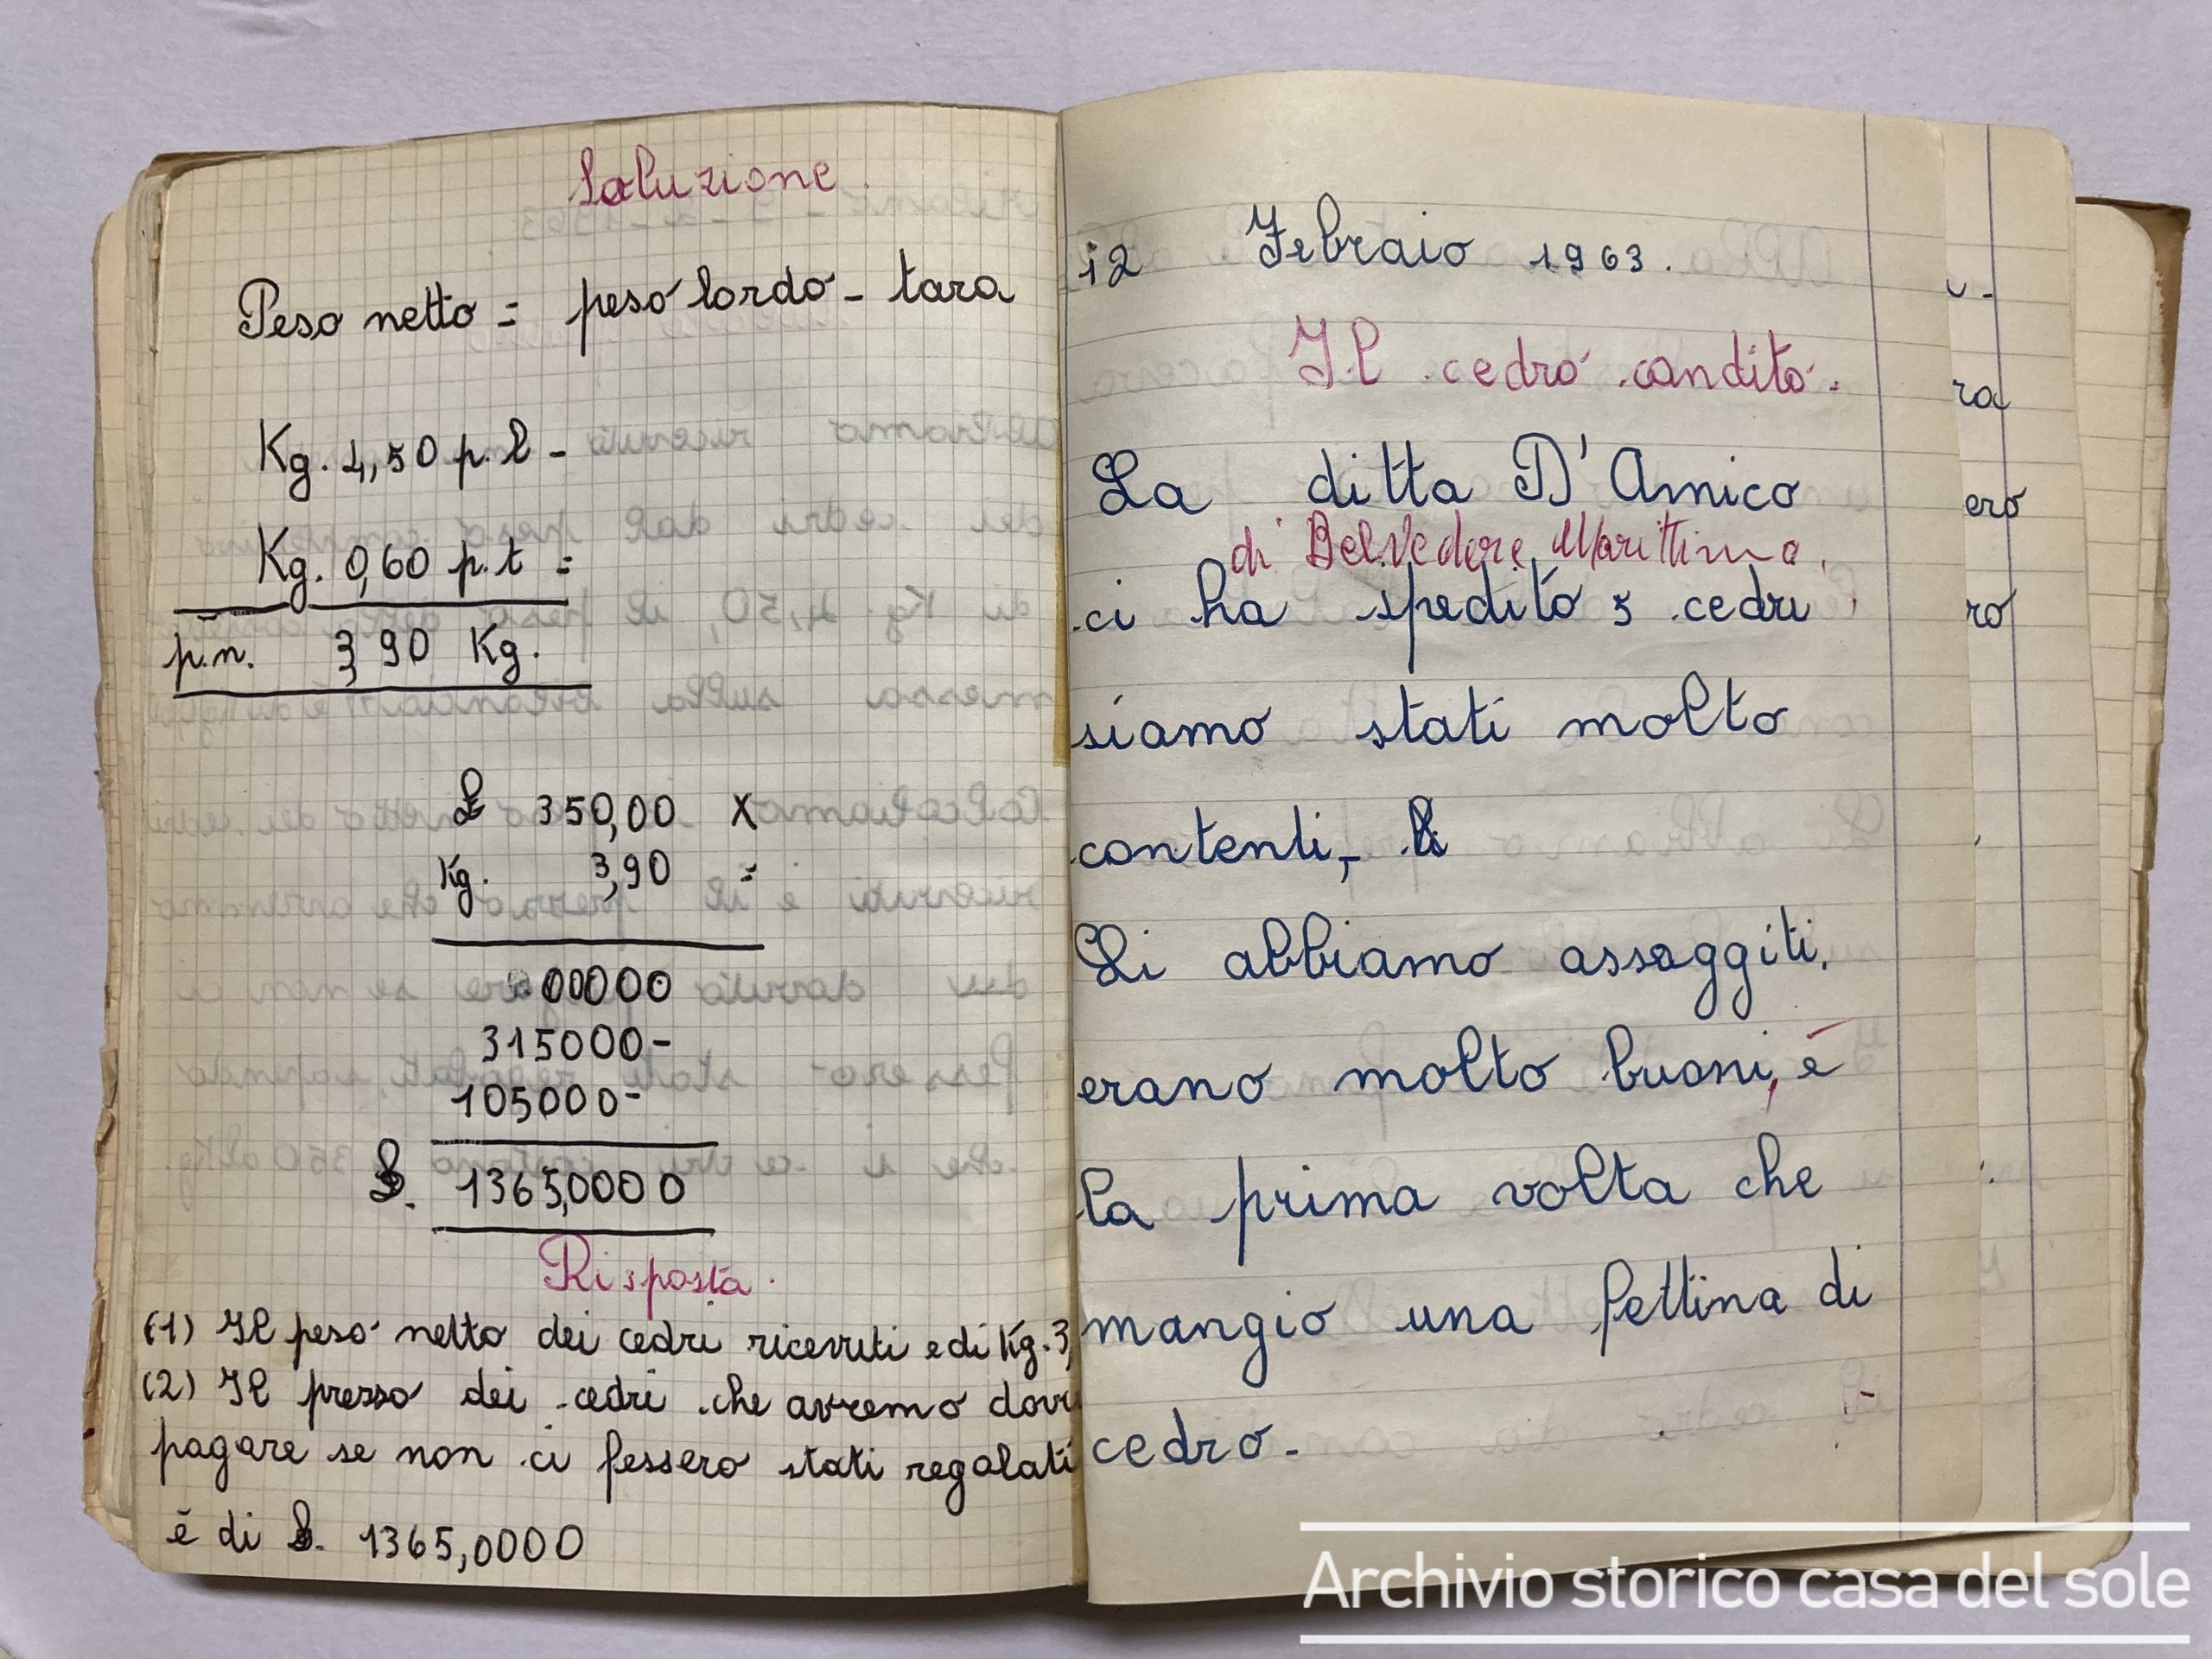 Soluzione
Peso netto = peso lordo - tara
Kg. 4,50 p.l -
Kg. 0,60 p.t =
p.n. 3,90 Kg.
£ 350,00 X
Kg. 3,90 =
00000
315000-
105000-
£. 1365,0000
Risposta.
(1) Il peso netto dei cedri ricevuti e di Kg. 3,
(2) Il prezzo dei cedri che avremo dovu
pagare se non ci fessero stati regalati
é di £. 1365,0000
12 Febraio 1963.
Il cedro candito.
La ditta D'Amico
di Belvedere Marittimo,
ci ha spedito 5 cedri
siamo stati molto
contenti,- li
Li abbiamo assaggiti,
erano molto buoni, é
la prima volta che
mangio una fettina di
cedro.-
ra
ero
ro
Archivio storico casa del sole